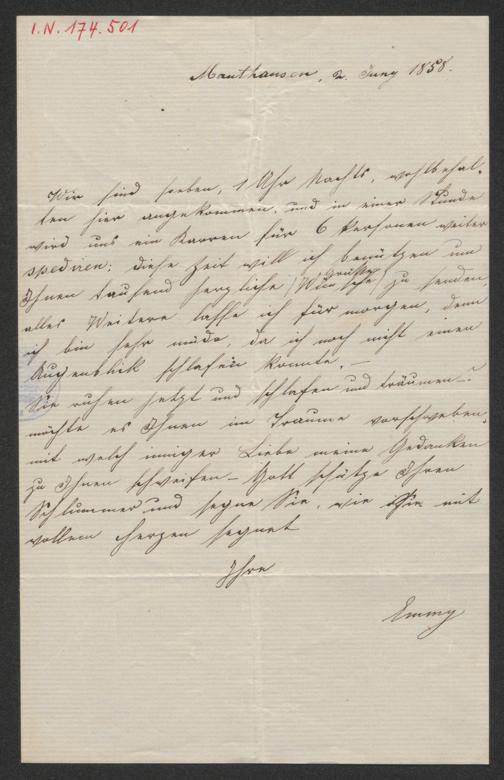 I.N. 174.501
Mauthausen, 2. Juny 1858.
Wir sind soeben, 1 Uhr Nachts, wohlbehal-
ten hier angekommen, und in einer Stunde
wird uns ein Karren für 6 Personen weiter
spediren; diese Zeit will ich benützen um
Grüße
Ihnen tausend herzliche Wünsche zu senden,
alles Weitere lasse ich für morgen, denn
ich bin sehr müde, da ich noch nicht einen
Augenblick schlafen konnte. –
Sie ruhen jetzt und schlafen und träumen –
möchte es Ihnen im Traume vorschweben,
mit welch inniger Liebe meine Gedanken
zu Ihnen schweifen – Gott schütze Ihren
Schlummer und segne Sie, wie Sie mit
vollem Herzen segnet
Ihre
Emmy